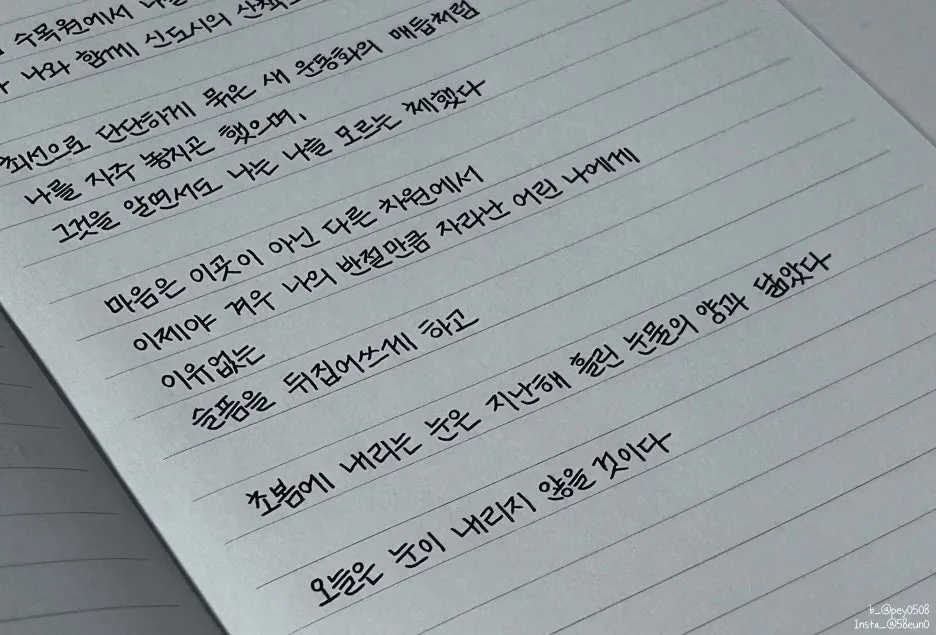 수목원에서
나와 함께 신도시의
최선으로 단단하게 묶은 새 운동화의 매듭처럼
나를 자주 놓치곤 했으며,
그것을 알면서도 나는 나를 모르는 체했다
마음은 이곳이 아닌 다른 차원에서
이제야 겨우 나의 반절만큼 자라난 어린 나에게
이유없는
슬픔을 뒤집어쓰게 하고
초봄에 내리는 눈은 지난해 흘린 눈물의 양과 닮았다
오늘은 눈이 내리지 않을 것이다
b_@pey0508
Insta_@58eun0